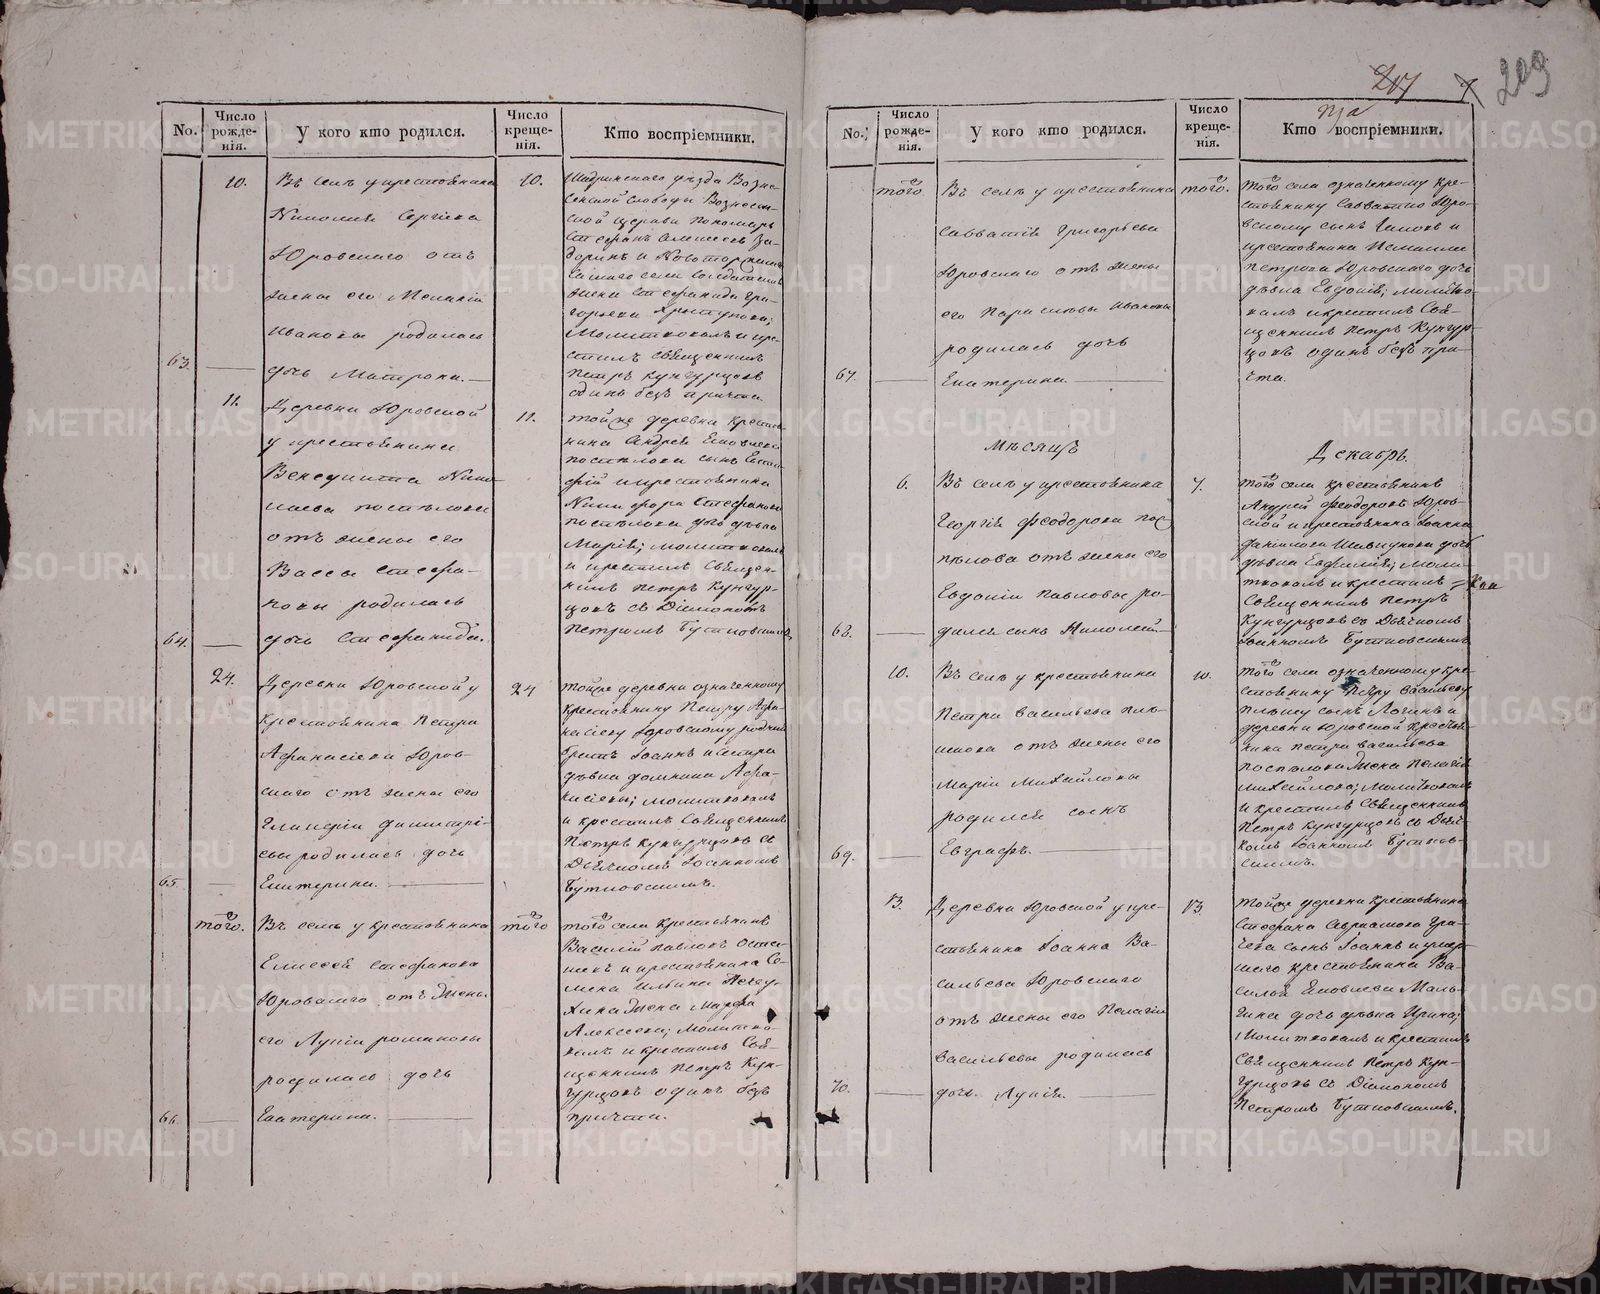 209
No.
Число рожде-нія.
У кого кто родился.
Число креще-нія.
Кто воспріемники.
10.
Въ селѣ у крестьянина
Сергіева
Юровскаго отъ
жены его
Ивановы родилась
63.
дочь Матрона.
10.
Шадринскаго уѣзда Возне-
сенской слободы Вознесен-
ской церкви пономарь
Стефанъ
жена Стефанида Гри-
горьева
Молитвовалъ и кре-
стилъ священникъ
Петръ Кунгурцовъ
одинъ безъ причта.
11.
Деревни Юровской
у крестьянина
Венедикта
Поспѣлова
отъ жены его
Вассы Стефа-
новы родилась
64.
дочь Стефанида.
11.
тойже деревни крестья-
нина Андрея
Поспѣлова сынъ
и крестьянина
Никифора Стефанова
Поспѣлова дочь дѣвка
Марія; молитвовалъ
и крестилъ священ-
никъ Петръ Кунгур-
цовъ съ Діакономъ
Петромъ Бутковскимъ
24.
Деревни Юровской у
крестьянина Петра
Афанасіева Юров-
скаго отъ жены его
Димитрі-
евы родилась дочь
65.
Екатерина.
24
тойже деревни означенному
крестьянину Петру Афа-
насіеву Юровскому родной
братъ Іоаннъ и сестра
дѣвка Домника Афа-
насіева; молитвовалъ
и крестилъ Священникъ
Петръ Кунгурцовъ съ
Дьячкомъ Іоанномъ
Бутковскимъ.
того.
Въ селѣ у крестьянина
Елисея Стефанова
Юровскаго отъ жены
его Лукіи Романовы
родилась дочь
66.
Екатерина.
того
того села крестьянинъ
Василій Павловъ
и крестьянина Се-
мена Ильина
жена Марфа
Алексеева; молитво-
валъ и крестилъ Свя-
щенникъ Петръ Кун-
гурцовъ одинъ безъ
причта.
No.
Число рожде-нія.
У кого кто родился.
Число креще-нія.
Кто воспріемники.
того
Въ селѣ у крестьянина
Савватія Григорьева
Юровскаго отъ жены
его Парасковы Ивановы
родилась дочь
67.
Екатерина.
того.
того села означенному кре-
стьянину Савватію Юро-
вскому сынъ и
крестьянина
Петрова Юровскаго дочь
дѣвка Евдокія; молитво-
валъ и крестилъ Свя-
щенникъ Петръ Кунгур-
цовъ одинъ безъ при-
чта.
Мѣсяцъ
Декабрь.
6.
Въ селѣ у крестьянина
Георгія Феодорова Пос-
пѣлова отъ жены его
Евдокіи Павловы ро-
68.
дился сынъ Николай.
7.
того села крестьянинъ
Андрей Феодоровъ Юров-
ской и крестьянина Іоанна
дочь
дѣвка Евфимія; моли-
твовалъ и крестилъ
Священникъ Петръ
Кунгурцовъ съ Дьячкомъ
Іоанномъ Бутковскимъ
10.
Въ селѣ у крестьянина
Петра Васильева
отъ жены его
Маріи Михайловы
родился сынъ
69.
Евграфъ.
10.
того села означенному кре-
стьянину Петру Васильеву
сынъ Логинъ и
деревни Юровской крестья-
нина Петра Васильева
Поспѣлова жена Пелагія
Михайлова; молитвовалъ
и крестилъ Священникъ
Петръ Кунгурцовъ съ Дьяч-
комъ Іоанномъ Бутков-
скимъ.
13.
Деревни Юровской у кре-
стьянина Іоанна Ва-
сильева Юровскаго
отъ жены его Пелагіи
Васильевы родилась
70.
дочь Лукія.
13.
тойже деревни крестьянина
Стефана
сынъ Іоаннъ и умер-
шаго крестьянина Ва-
силья Яковлева
дочь дѣвка Ирина;
Молитвовалъ и крестилъ
Священникъ Петръ Кун-
гурцовъ съ Діакономъ
Петромъ Бутковскимъ.
METRIKI.GASO-URAL.RU